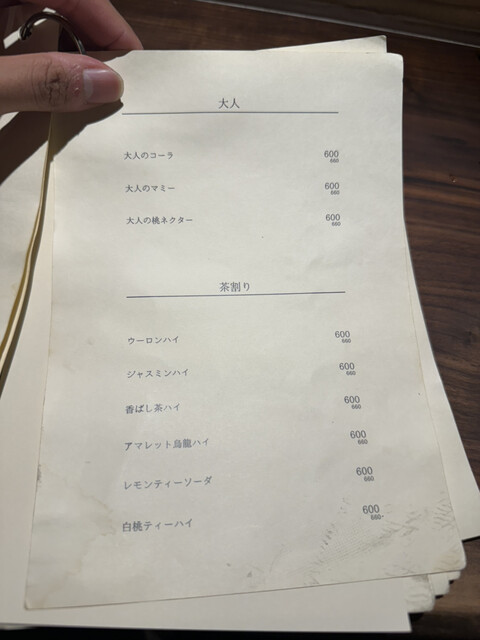 大人
大人のコーラ 600
660
大人のマミー 600
660
大人の桃ネクター 600
660
茶割り
ウーロンハイ 600
660
ジャスミンハイ 600
660
香ばし茶ハイ 600
660
アマレット烏龍ハイ 600
660
レモンティーソーダ 600
660
白桃ティーハイ 600
660